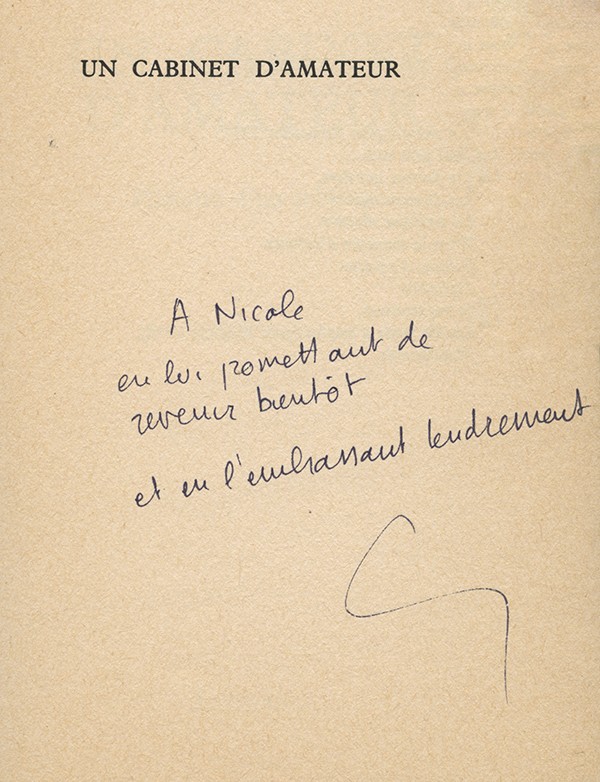 UN CABINET D'AMATEUR
A Nicole
en lui promettant de
revenir bientôt
et en l'embrassant tendrement